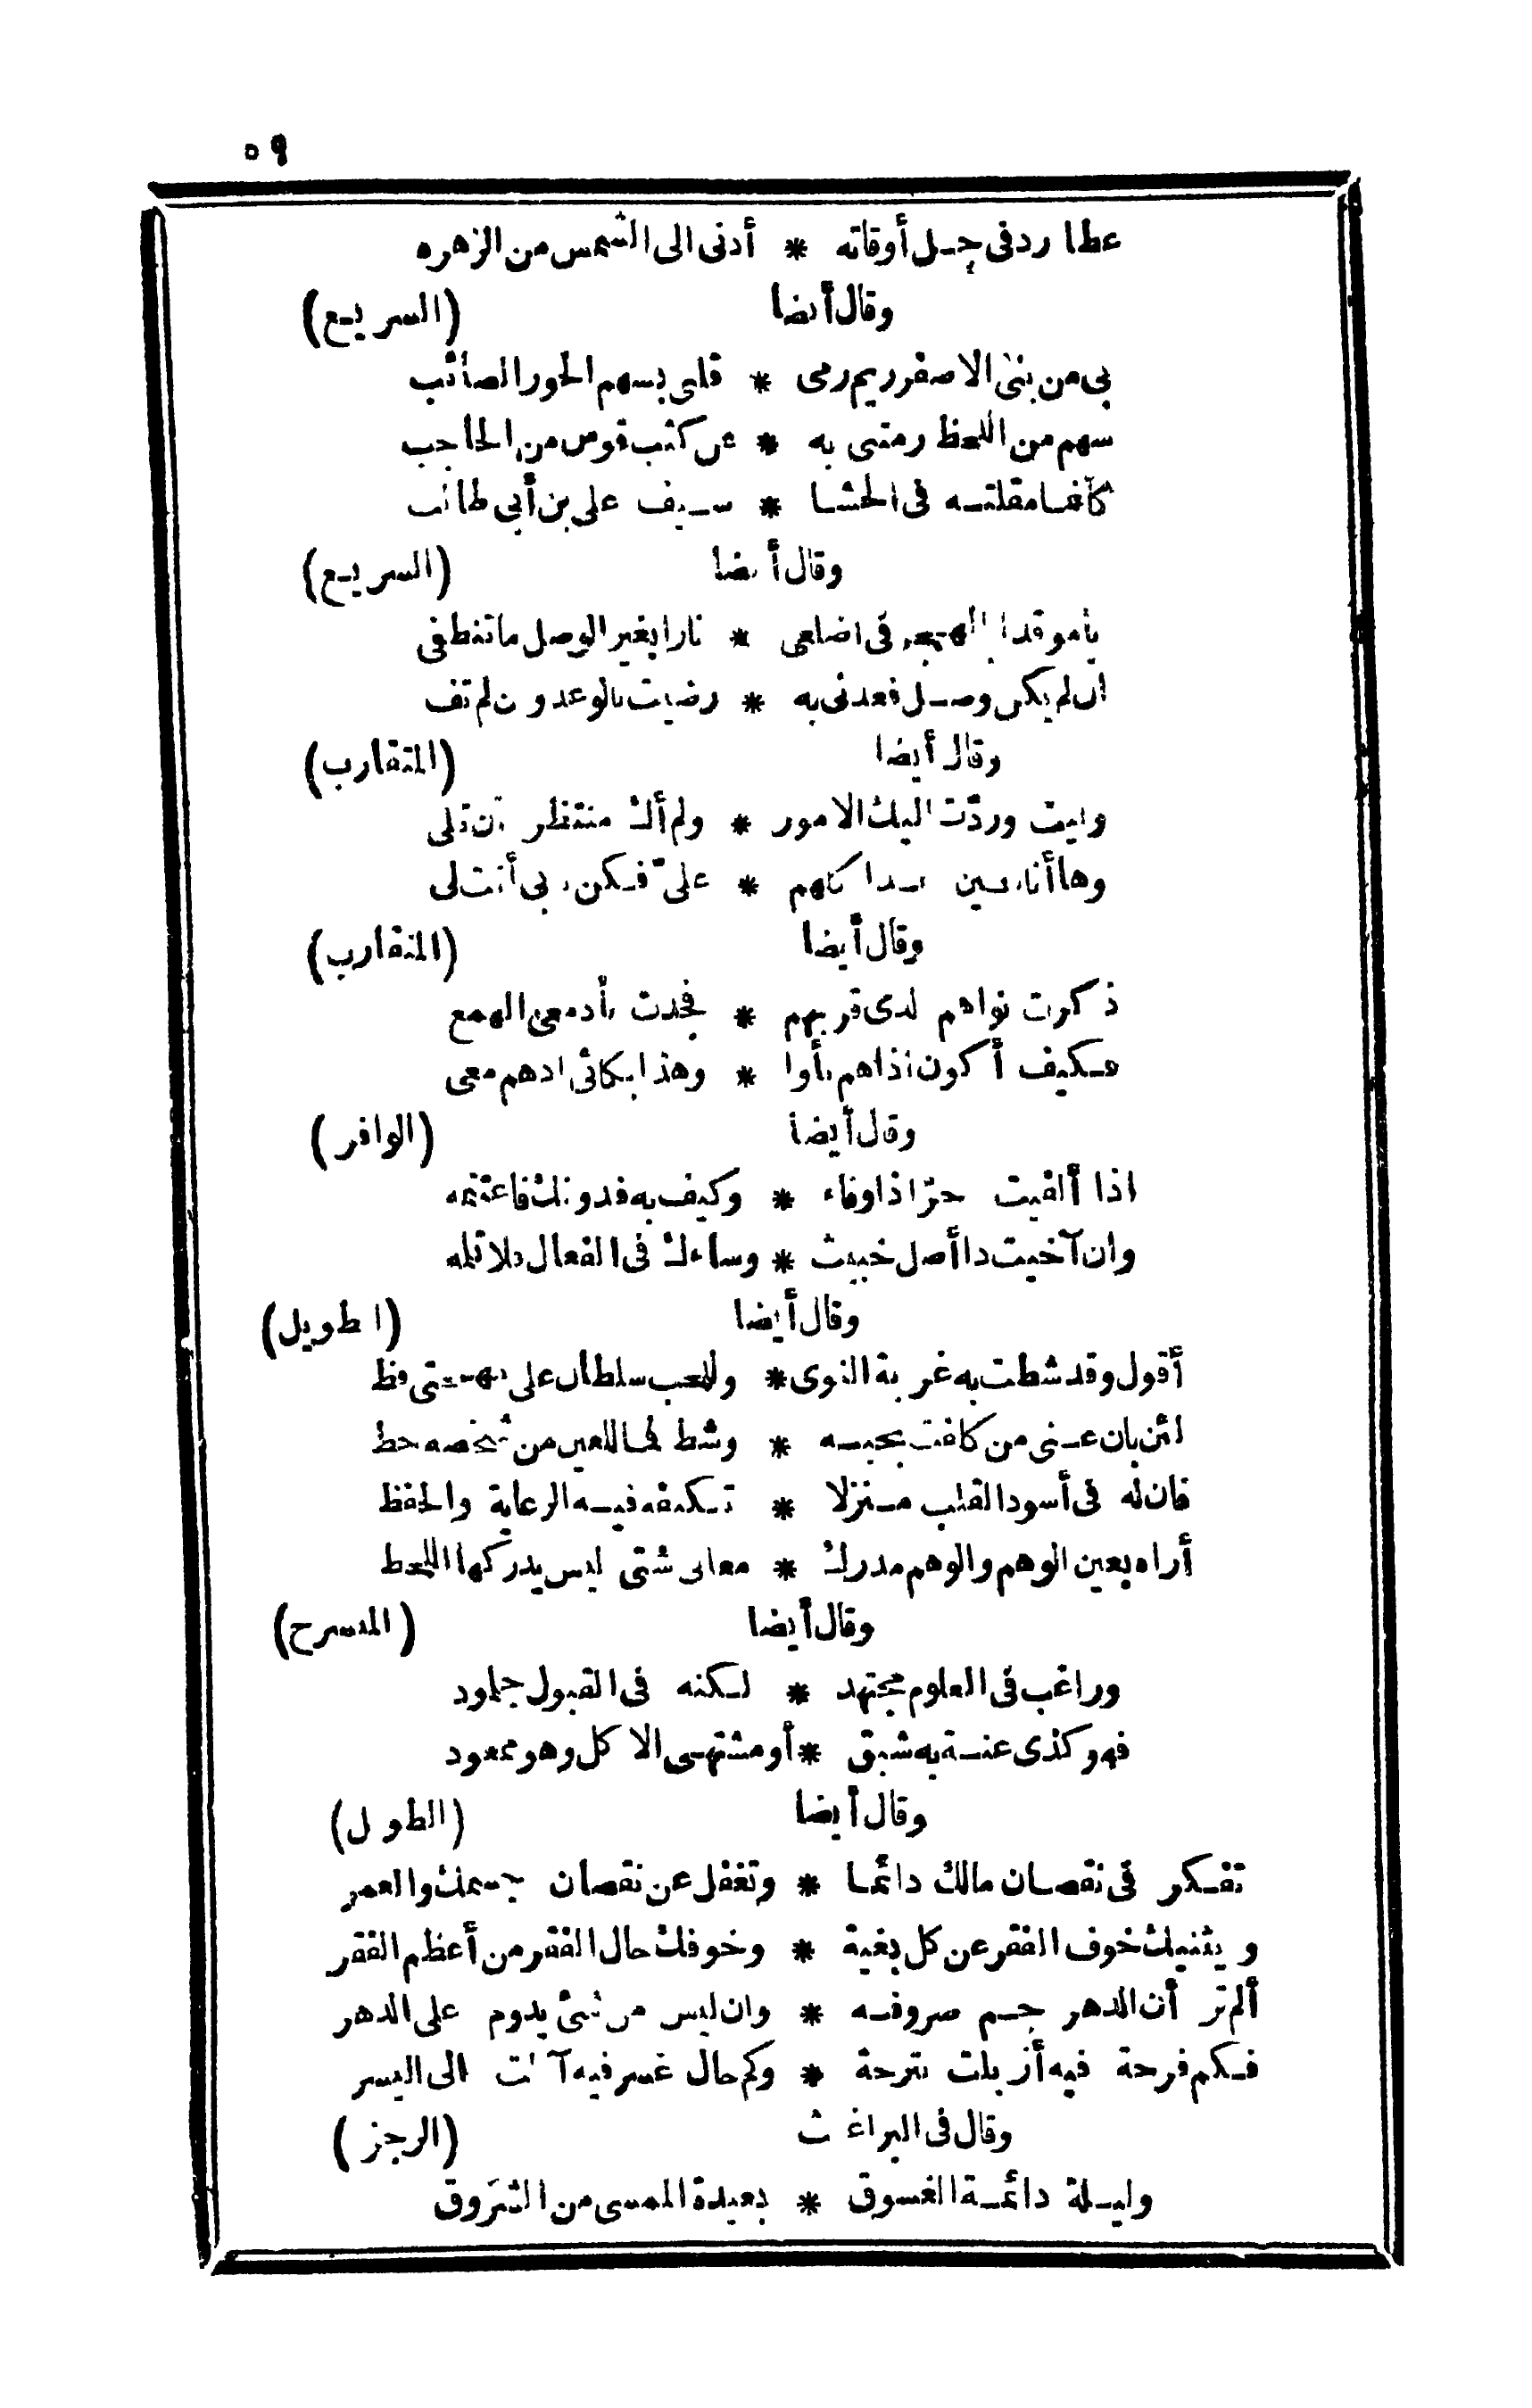 ٥٩
عطارد في جل أوقاته * أدنى الى الشمس من الزهره
وقال أيضا (السريع)
بي من بني الاصفر ريم رمى * قلبي بسهم الحور الصائب
سهم من اللحظ رمتني به * عن كثب قوس من الحاجب
كأنما مقلته في الحشا * سيف علي بن أبي طالب
وقال أيضا (السريع)
ياموقدا بالهجر في اضلعي * نارا بغير الوصل ماتنطفي
ان لم يكن وصل فعدني به * رضيت بالوعد وان لم تف
وقال أيضا (المتقارب)
وليت وردّت اليك الامور * ولم أك منتظر أن تلي
وها أنا بين عدا كلهم * عليّ فكن بي أنت لي
وقال أيضا (المتقارب)
ذكرت نواهم لدى قربهم * فجدت بأدمعي الهمع
فكيف أكون اذا هم نأوا * وهذا بكائي اذ هم معي
وقال أيضا (الوافر)
اذا ألفيت حرّا ذا وفاء * وكيف به فدونك فاغتنمه
وان آخيت ذا أصل خبيث * وساءك في الفعال فلا تلمه
وقال أيضا (الطويل)
أقول وقد شطت به غربة النوى * وللحب سلطان على مهجتي فظ
لئن بان عني من كلفت بحبه * وشط فما للعين من شخصه حظ
فان له في أسود القلب منزلا * تكنفه فيه الرعاية والحفظ
أراه بعين الوهم والوهم مدرك * معاني شتى ليس يدركها اللحظ
وقال أيضا (المنسرح)
وراغب في العلوم مجتهد * لكنه في القبول جلمود
فهو كذي عنة به شبق * أو مشتهي الاكل وهو ممعود
وقال أيضا (الطويل)
تفكر في نقصان مالك دائما * وتغفل عن نقصان جسمك والعمر
ويثنيك خوف الفقر عن كل بغية * وخوفك حال الفقر من أعظم الفقر
ألم تر أن الدهر جم صروفه * وان ليس من شئ يدوم على الدهر
فكم فرحة فيه أزيلت بترحة * وكم حال عسر فيه آلت الى اليسر
وقال في البراغيث (الرجز)
وليلة دائمة الغسوق * بعيدة الممسى من الشروق